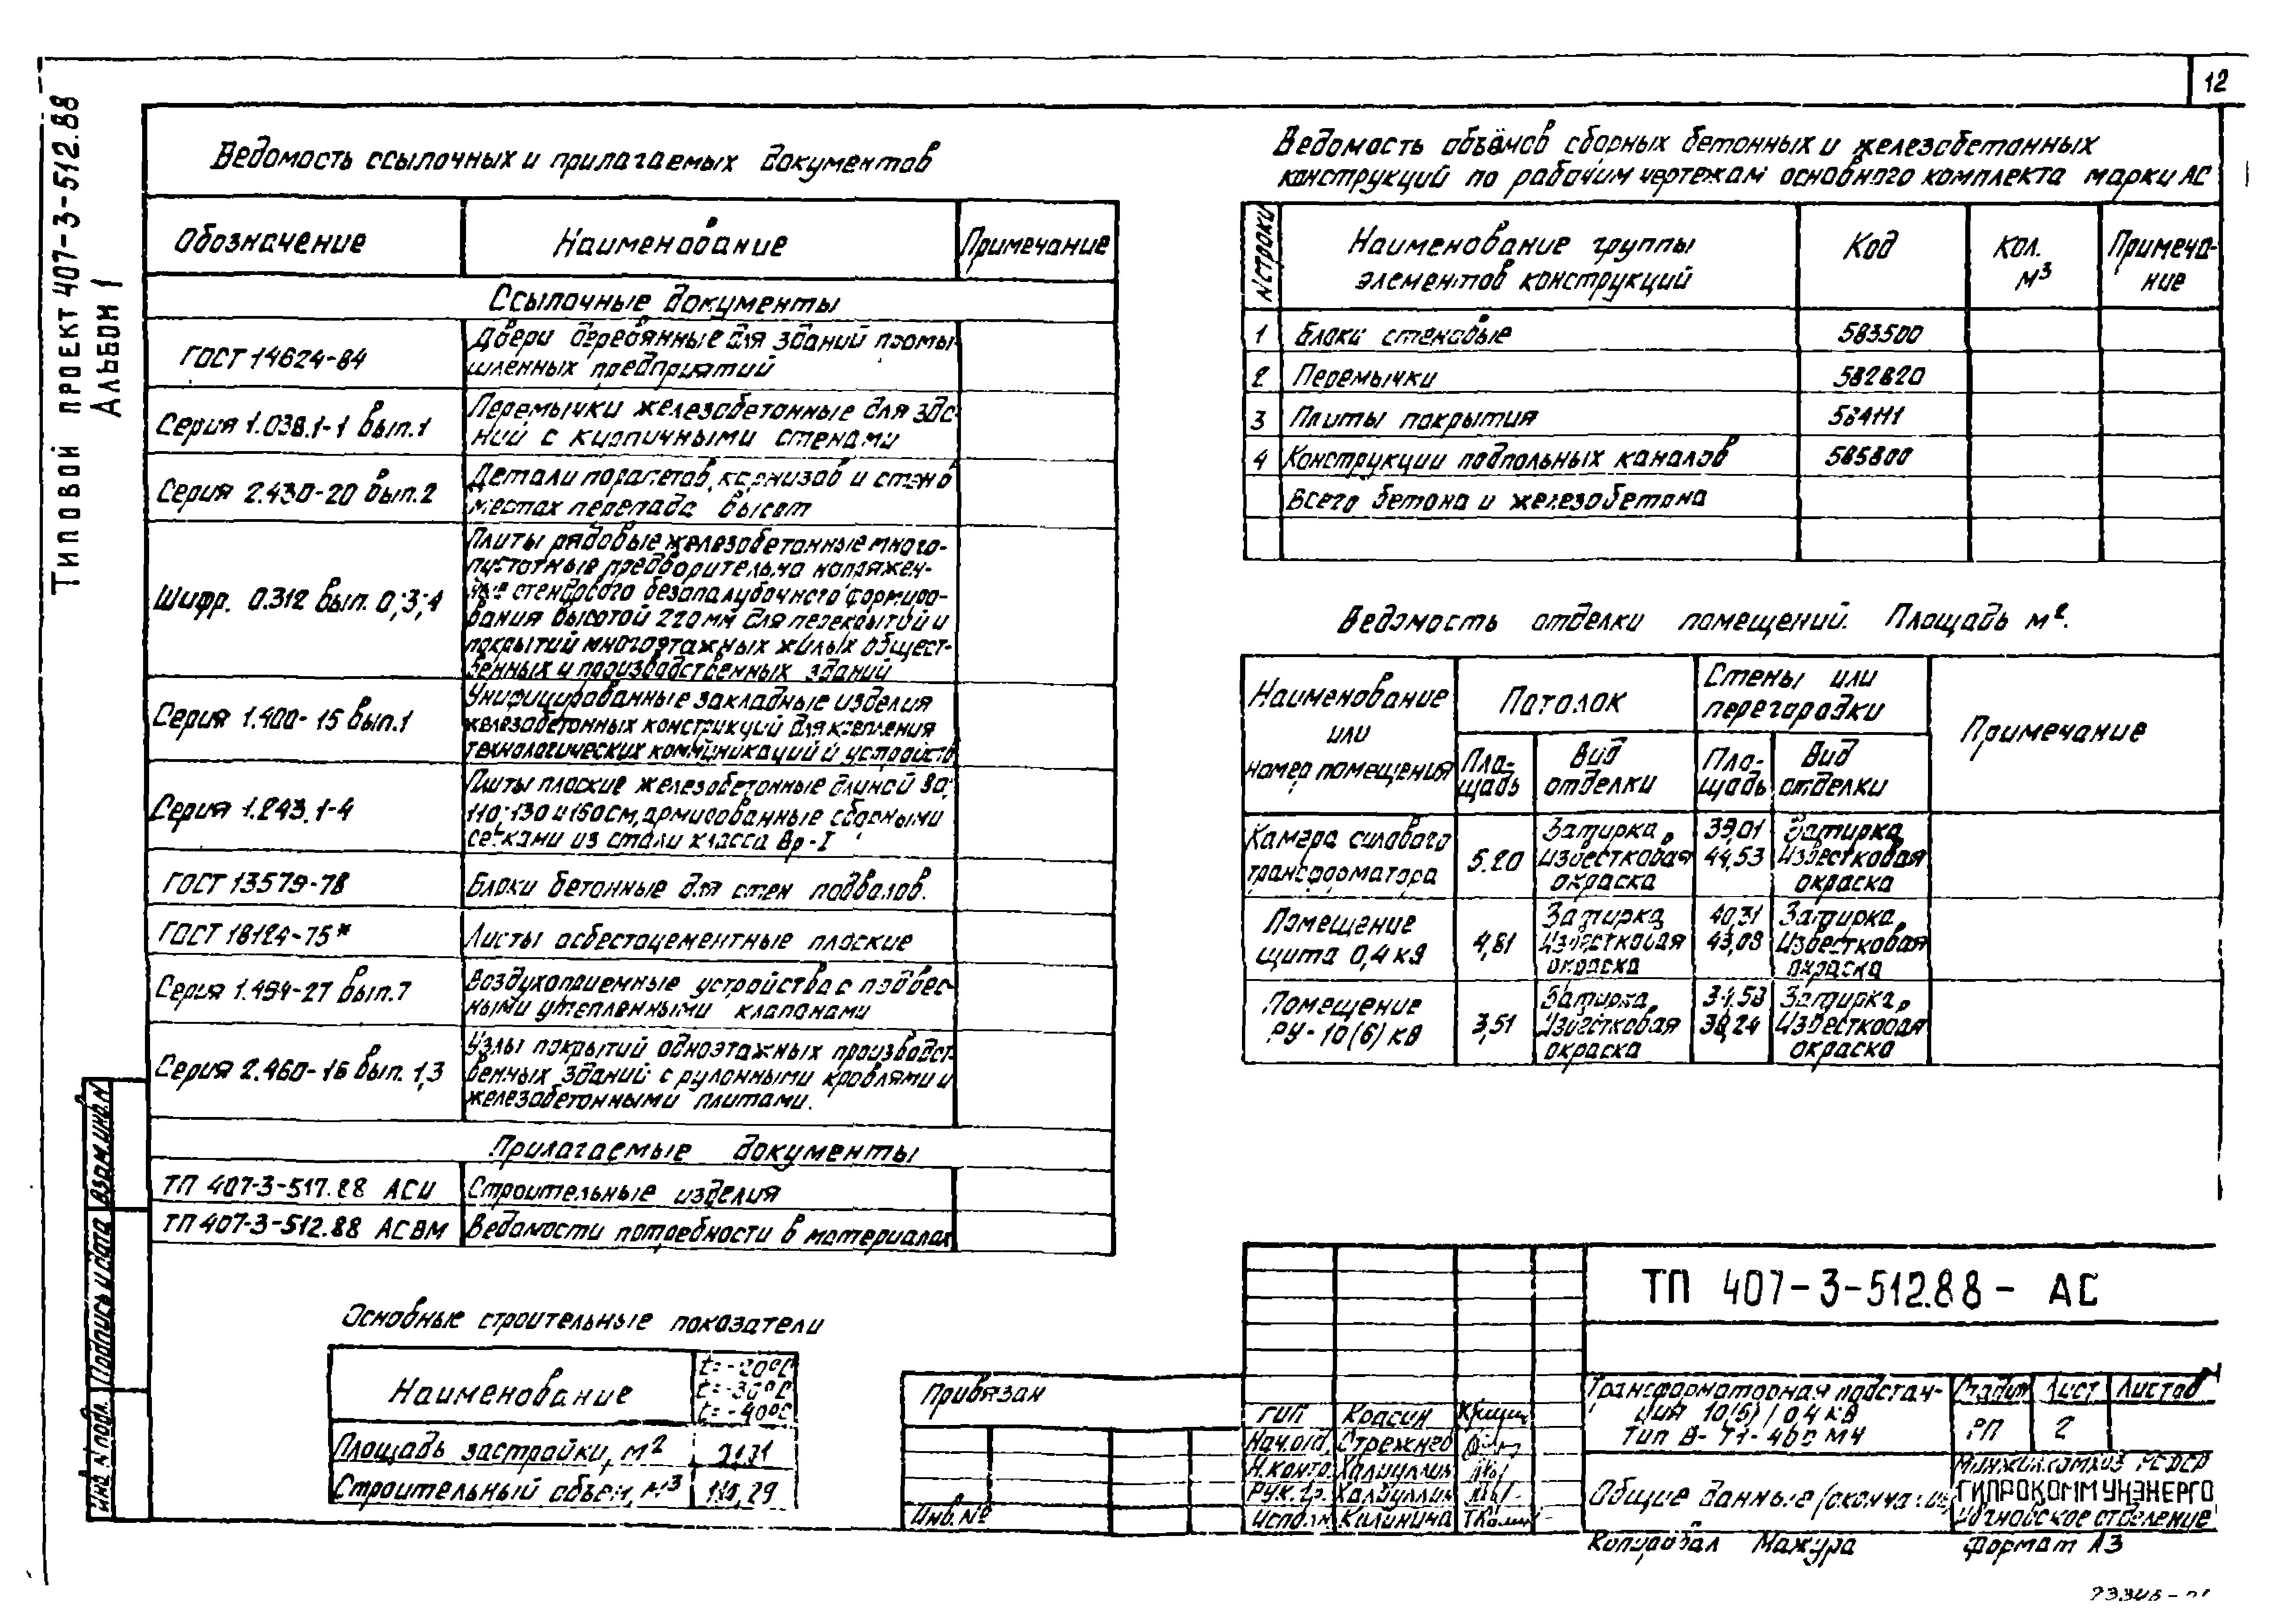 12
Типовой проект 407-3-512.88
Альбом 1
Ведомость ссылочных и прилагаемых документов
Обозначение
Наименование
Примечание
Ссылочные документы
ГОСТ 14624-84
Двери деревянные для зданий промы-
шленных предприятий
Серия 1.038.1-1 вып.1
Перемычки железобетонные для зда-
ний с кирпичными стенами
Серия 2.430-20 вып.2
Детали парапетов, карнизов и стен в
местах перепада высот
Шифр. 0.312 вып. 0;3;4
Плиты рядовые железобетонные много-
пустотные предварительно напряжен-
ные стендового безопалубочного формиро-
вания высотой 220 мм для перекрытий и
покрытий многоэтажных жилых общест-
венных и производственных зданий
Серия 1.400-15 вып.1
Унифицированные закладные изделия
железобетонных конструкций для крепления
технологических коммуникаций и устройств
Серия 1.243.1-4
Плиты плоские железобетонные длиной 80;
110; 130 и 160 см, армированные сборными
сетками из стали класса Вр-I
ГОСТ 13579-78
Блоки бетонные для стен подвалов.
ГОСТ 18124-75*
Листы асбестоцементные плоские
Серия 1.494-27 вып.7
Воздухоприемные устройства с подвес-
ными утепленными клапанами
Серия 2.460-16 вып. 1,3
Узлы покрытий одноэтажных производст-
венных зданий с рулонными кровлями и
железобетонными плитами.
Прилагаемые документы
ТП 407-3-517.88 АСИ
Строительные изделия
ТП 407-3-512.88 АСВМ
Ведомости потребности в материалах
Основные строительные показатели
Наименование
t=-20°С
t=-30°С
t=-40°С
Площадь застройки, м2
Строительный объем, м3
Ведомость объёмов сборных бетонных и железобетонных
конструкций по рабочим чертежам основного комплекта марки АС
N строки
Наименование группы
элементов конструкций
Код
Кол.
м3
Примеча-
ние
1 Блоки стеновые 583500
2 Перемычки 582820
3 Плиты покрытия 584111
4 Конструкции подпольных каналов 585800
Всего бетона и железобетона
Ведомость отделки помещений. Площадь м2.
Наименование
или
номер помещения
Потолок
Стены или
перегородки
Примечание
Пло-
щадь
Вид
отделки
Пло-
щадь
Вид
отделки
Камера силового
трансформатора
5.20
Затирка,
Известковая
окраска
39,01
44,53
Затирка,
Известковая
окраска
Помещение
щита 0,4 кв
4,81
Затирка,
Известковая
окраска
40,31
43,08
Затирка,
Известковая
окраска
Помещение
РУ-10(6) кв
3,51
Затирка,
Известковая
окраска
34.58
38,24
Затирка,
Известковая
окраска
Взам.инв.N
Подпись и дата
Инв. N подл.
Привязан
Инв. №
ГИП Красин
Нач.отд. Стрежнев
Н.контр. Халиуллин
Рук.гр. Халиуллин
Исполн. Калинина
ТП 407-3-512.88-АС
Трансформаторная подстан-
ция 10(6)/0,4 кв
Стадия
Лист
Листов
РП
2
Общие данные
Минжилкомхоз РСФСР
ГИПРОКОММУНЭНЕРГО
отделение
Копировал Мажура
Формат А3